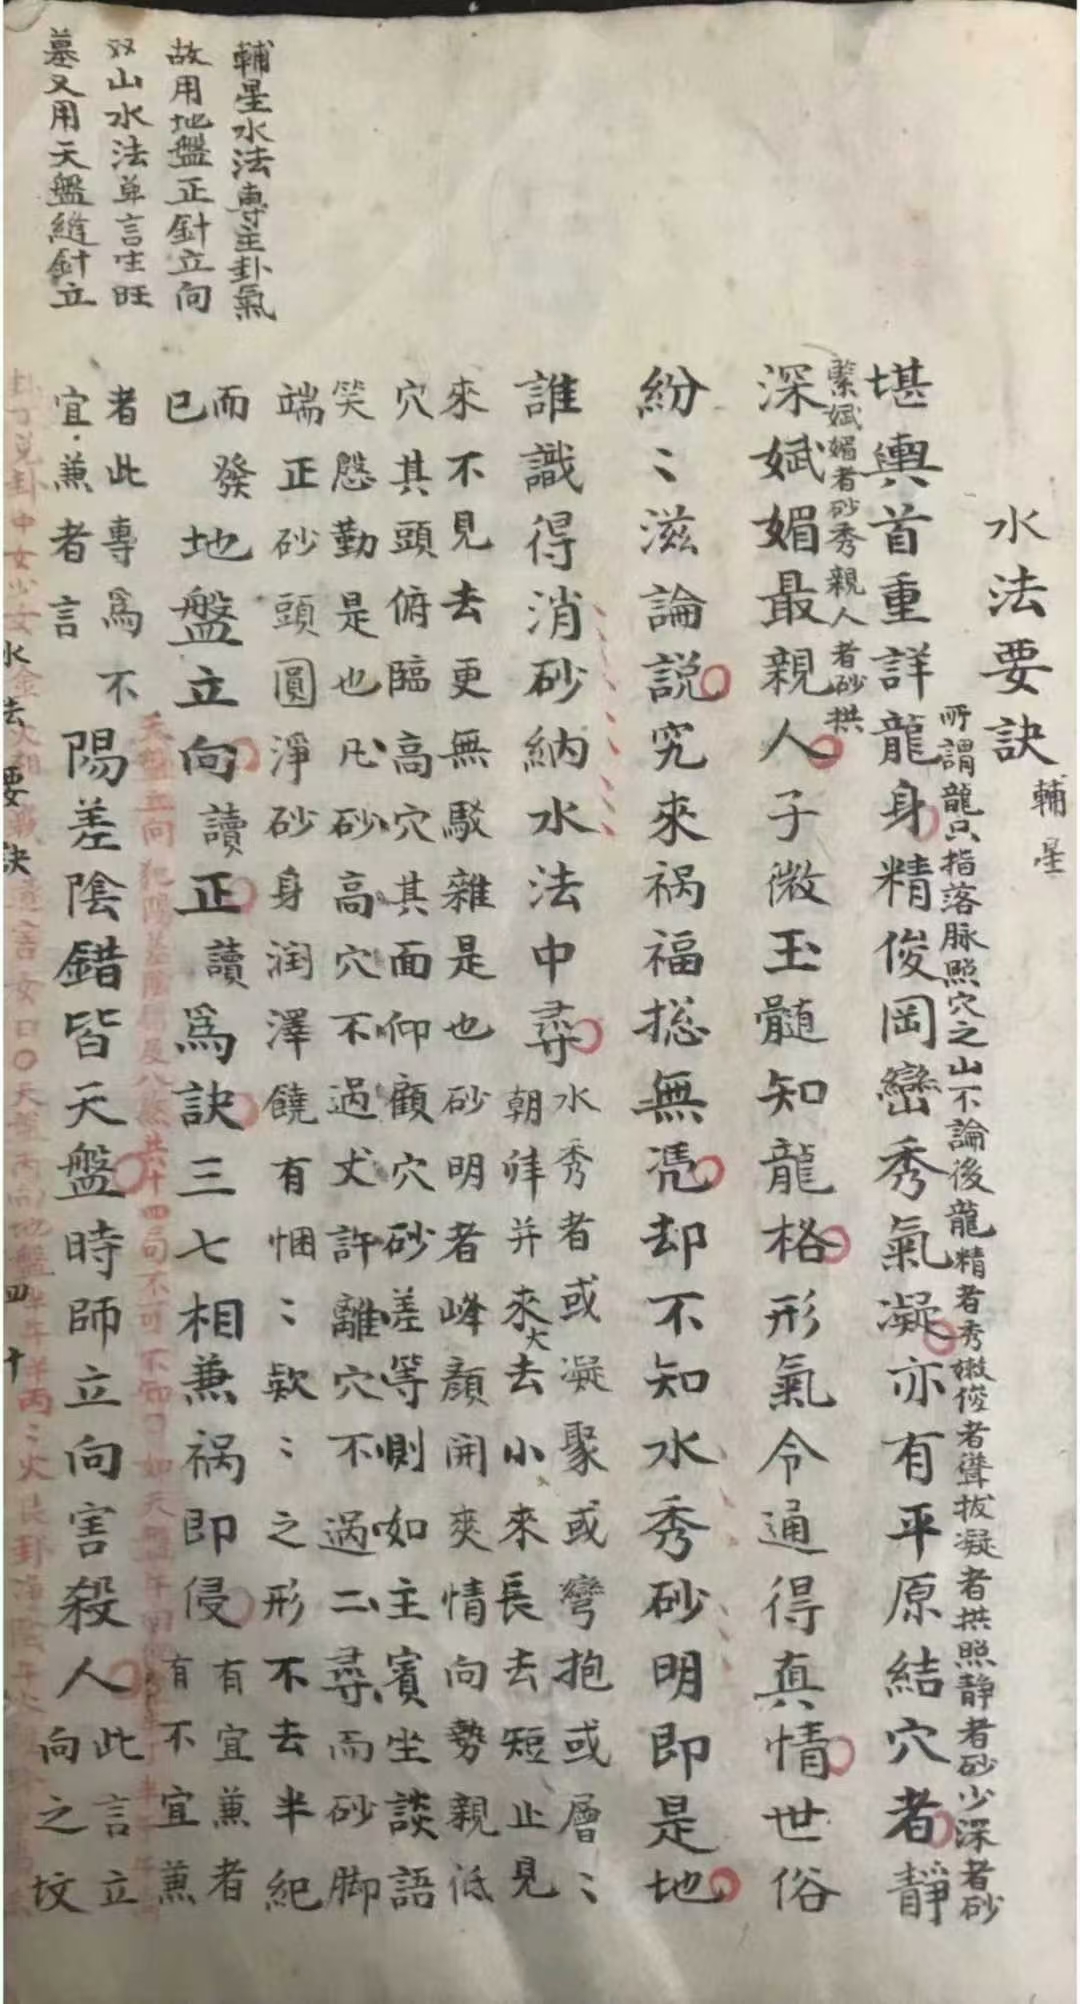 輔星水法專主卦氣
故用地盤正針立向
双山水法單言生旺
墓又用天盤縫針立
水法要訣
輔星
所謂龍只指落脉照穴之山不論後龍精者秀嫩俊者聳拔凝者拱照靜者砂少深者砂
堪輿首重詳龍身精俊岡巒秀氣凝亦有平原結穴者靜
繄娬媚者砂秀親人者砂拱
深娬媚最親人子微玉髓知龍格形氣令通得真情世俗
紛〻滋論説究來祸福揔無凴却不知水秀砂明即是地
誰識得消砂納水法中尋
水秀者或凝聚或彎抱或層〻
朝拜并來大去小來長去短止見
來不見去更無駁雜是也砂明者峰顏開爽情向勢親低
穴其頭俯臨高穴其面仰顧穴砂差等則如主賓坐談語
笑慇勤是也凡砂高穴不過丈許離穴不過二尋而砂脚
端正砂頭圓淨砂身润澤饒有悃〻欵〻之形不去半紀
而發
已
地盤立向讀正讀爲訣三七相兼祸即侵
有宜兼者
有不宜兼
者此專爲不
宜兼者言
陽差陰錯皆天盤時師立向害殺人
此言立
向之坟
天盤立向犯陽差陰錯及八煞共十四局不可不知
水法要訣
四十